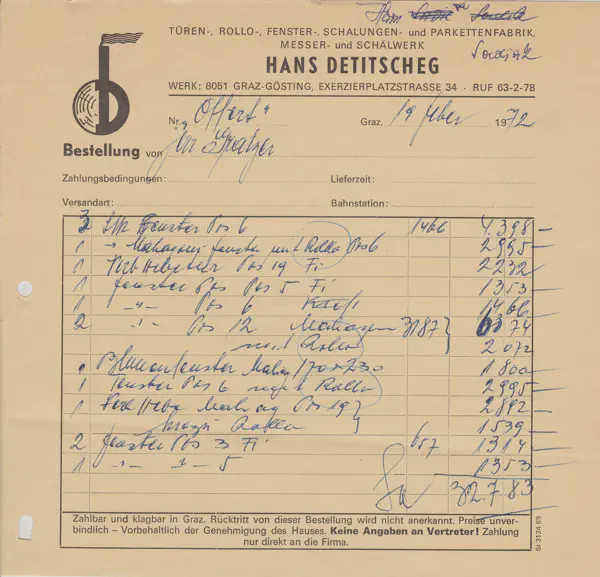 Herrn
TÜREN-, ROLLO-, FENSTER-, SCHALUNGEN- und PARKETTENFABRIK,
MESSER- und SCHÄLWERK
HANS DETITSCHEG
WERK: 8051 GRAZ-GÖSTING, EXERZIERPLATZSTRASSE 34 · RUF 63-2-78
Nr. "Offert" Graz, 19 Feber 1972
Bestellung von
Zahlungsbedingungen: Lieferzeit:
Versandart: Bahnstation:
3 Fenster Pos 6 1466 4.398—
1 Mahagoni Fenster mit Rollo Pos 6 2995—
1 Pos 19 Fi 2232
1 Fenster Pos Pos 5 Fi 1353—
1 -"- Pos 6 1466—
2 -"- Pos 12 Mahagoni 3187 6374
Rollo 2072
Blumenfenster Mahag 170x230 1800
1 Fenster Pos 6 Rollo 2995—
1 Mahag Pos 19 2892—
Rollo 1539
2 Fenster Pos 3 Fi 657 1314—
1 -"- -"- 5 1353—
Sa 32.783
Zahlbar und klagbar in Graz. Rücktritt von dieser Bestellung wird nicht anerkannt. Preise unver-
bindlich – Vorbehaltlich der Genehmigung des Hauses. Keine Angaben an Vertreter! Zahlung
nur direkt an die Firma.
St 3124 69